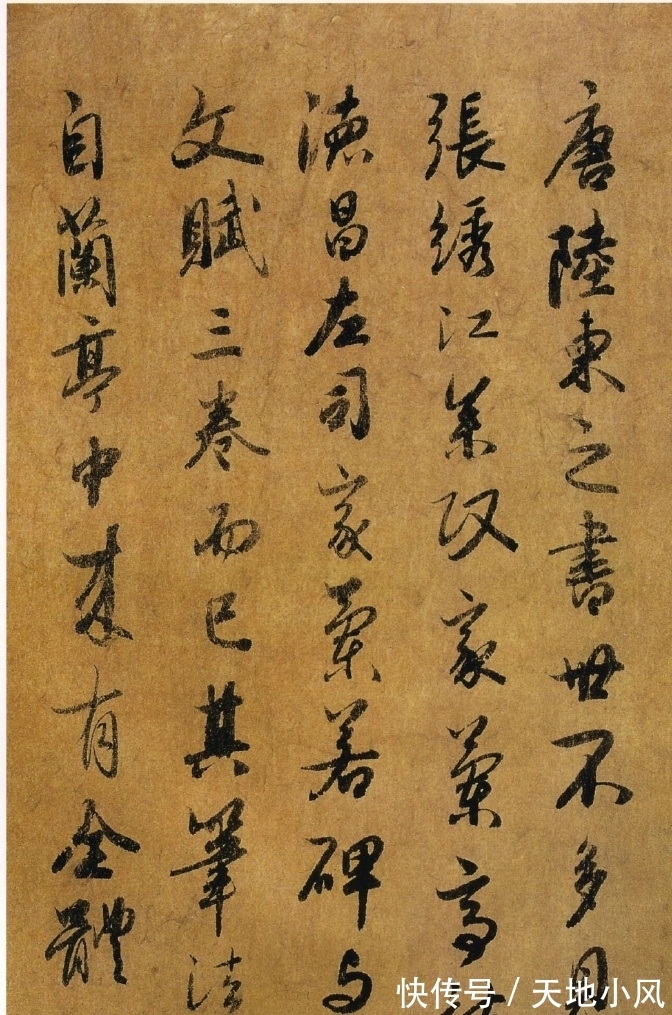 唐陸柬之書世不多見
張綉江叅政家蘭亭
德昌左司家蘭若碑与
文賦三卷而已其筆法
自蘭亭中来有全體
快传号 / 天地小风